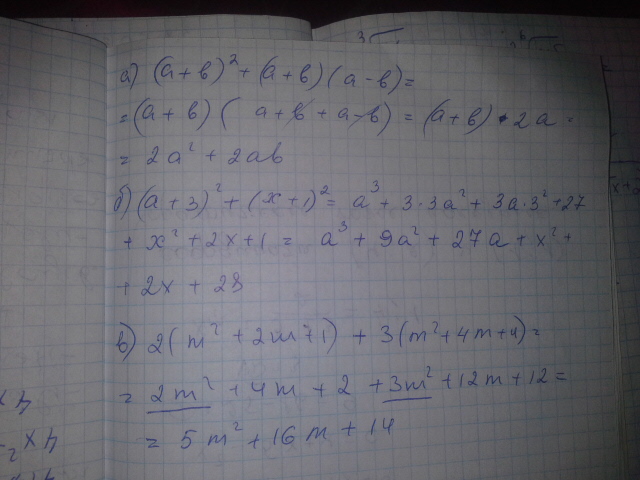 а) (a+b)² + (a+b)(a-b) =
= (a+b)( a+b + a-b) = (a+b) · 2a =
= 2a² + 2ab
б) (a+3)² + (x+1)² = a³ + 3·3a² + 3a·3² + 27
+ x² + 2x + 1 = a³ + 9a² + 27a + x² +
+ 2x + 28
в) 2(m² + 2m + 1) + 3(m² + 4m + 4) =
= 2m² + 4m + 2 + 3m² + 12m + 12 =
= 5m² + 16m + 14